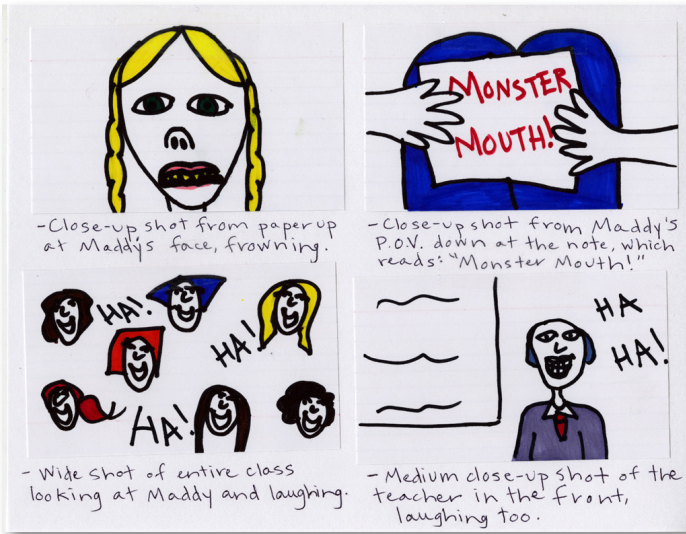 -Close-up shot from paper up
at Maddy's face, frowning.
MONSTER
MOUTH!
-Close-up shot from Maddy's
P.O.V. down at the note, which
reads: "Monster Mouth!"
HA!
HA!
HA!
- Wide shot of entire class
looking at Maddy and laughing.
HA
HA!
-Medium close-up shot of the
teacher in the front,
laughing too.